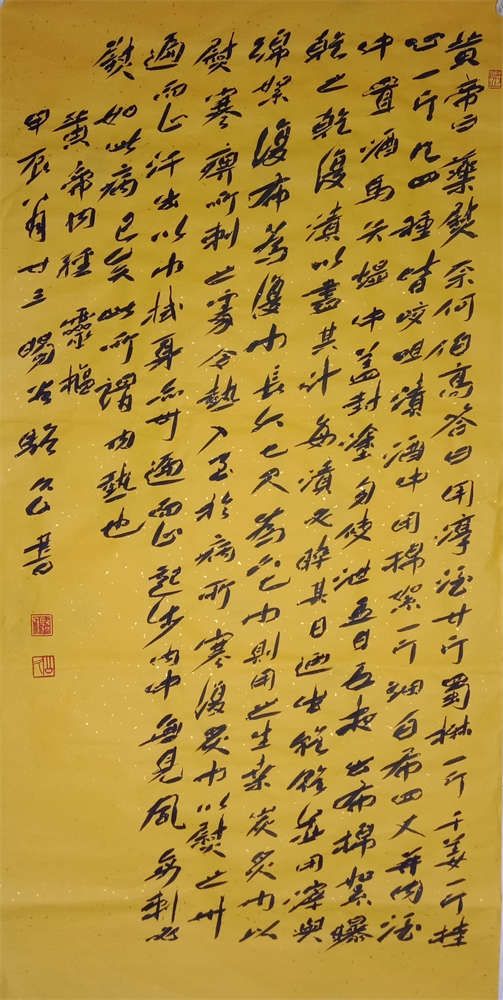 黃帝曰藥熨奈何伯高答曰用淳酒廿斤蜀椒一斤干姜一斤桂
心一斤凡四種皆咬咀漬酒中用棉絮一斤細白布四丈并內酒
中置酒馬矢熅中蓋封塗勿使泄五日五夜出布棉絮曝
乾之乾復漬以盡其汁每漬必晬其日迺出乾乾并用滓與
綿絮復布為復巾長六七尺為六七巾則用之生桑炭炙巾以
熨寒痹所刺之處令熱入至於病所寒復炙巾以熨之卅
遍而止汗出以巾拭身亦卅遍而止起步內中無見風每刺必
熨如此病已矣此所謂內熱也
黃帝內經靈樞
甲辰八月廿三暘谷駱公書